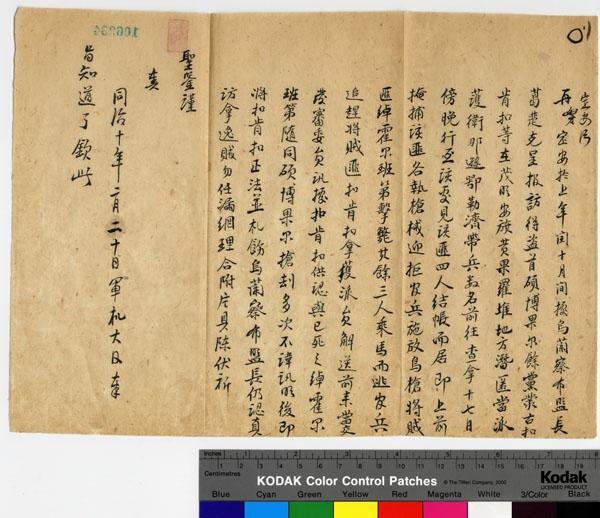 定安片
再奴才定安於上年閏十月間據烏蘭察布盟長
葛楚克呈報訪得盜首碩博果爾餘黨蒙古扣
肯扣等在茂明安旗黃果羅堆地方潛匿當派
護衛那遜鄂勒濟帶兵数名前往查拿十七日
傍晚行至該處見該匪四人結帳而居即上前
掩捕該匪各執槍械迎拒官兵施放鳥槍將賊
匪綽霍爾班第擊斃其餘三人乘馬而逃官兵
追趕將賊匪扣肯扣拿獲派員解送前來當
發審委員訊據扣肯扣供認與已死之綽霍尔
班第隨同碩博果尔搶刦多次不諱訊明後即
將扣肯扣正法並札飭烏蘭察布盟長仍認真
訪拿逸賊勿任漏網理合附片具陳伏祈
聖鑒謹
奏
同治十年二月二十日軍机大臣奉
旨知道了欽此
106896
Inches
Centimetres
KODAK Color Control Patches
© The Tiffen Company, 2000
Kodak
LICENSED PRODUCT
Blue Cyan Green Yellow Red Magenta White 3/Color Black